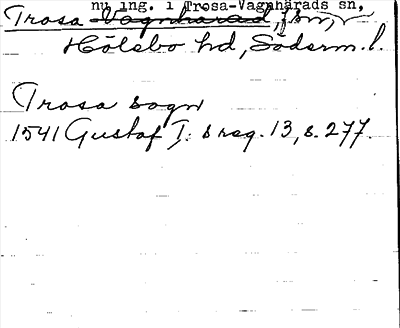 nu ing. i Trosa-Vagnhärads sn,
Trosa Vagnhärad, sn,
Hölebo hd, Söderm. l.
Trosa sogn
1541 Gustaf I:s reg. 13, s. 277.